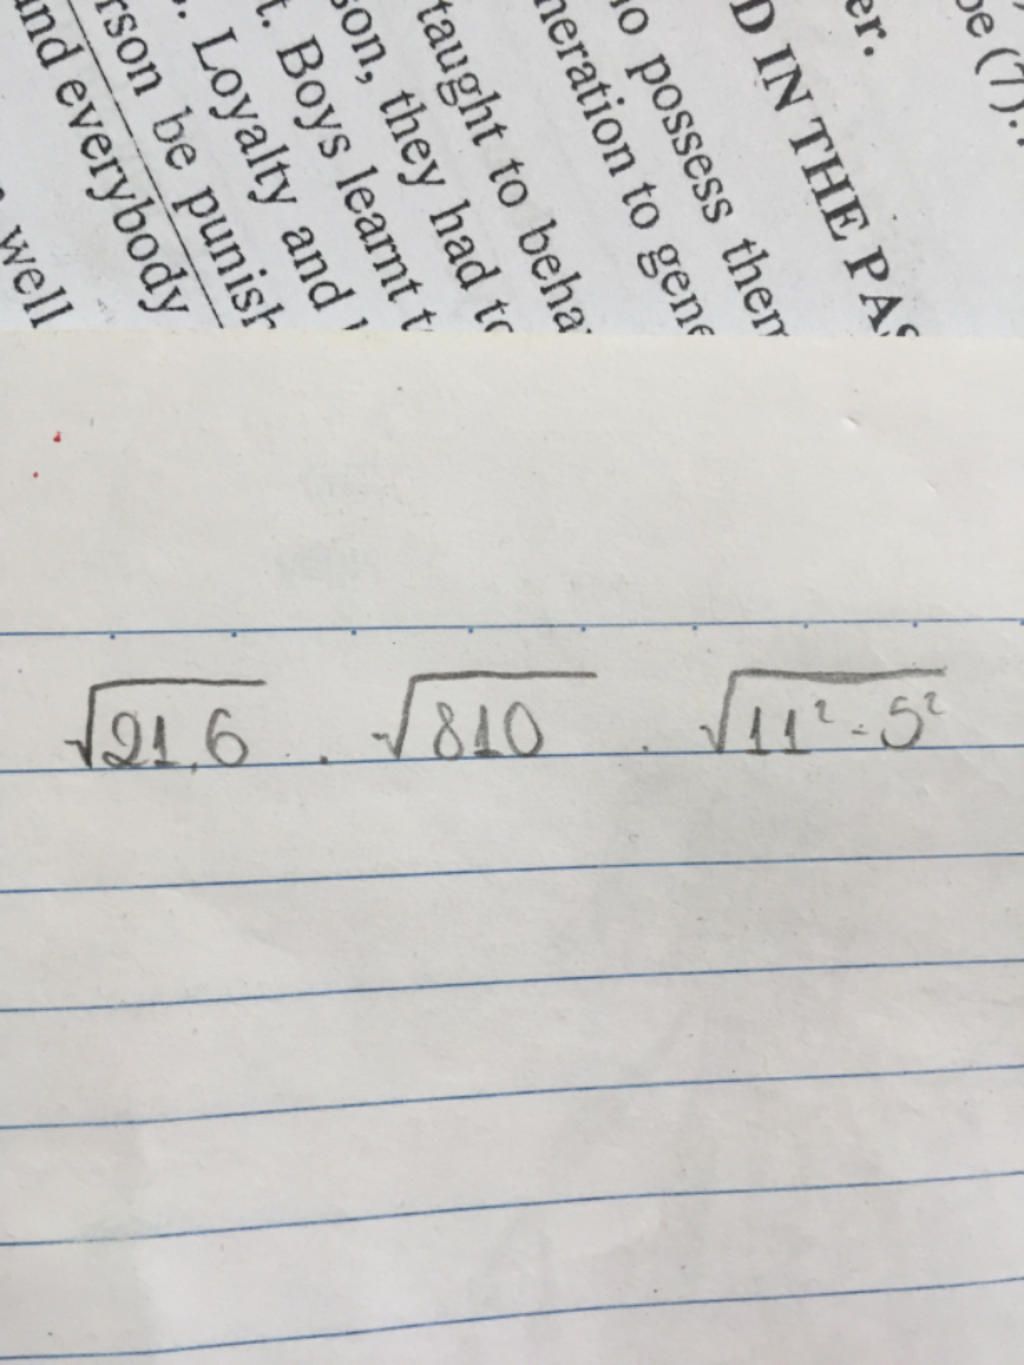 be (7).
er.
D IN THE PAS
no possess them
neration to gene
taught to behav
son, they had to
t. Boys learnt t
. Loyalty and
rson be punish
and everybody
well
√21,6 . √810 . √11² - 5²